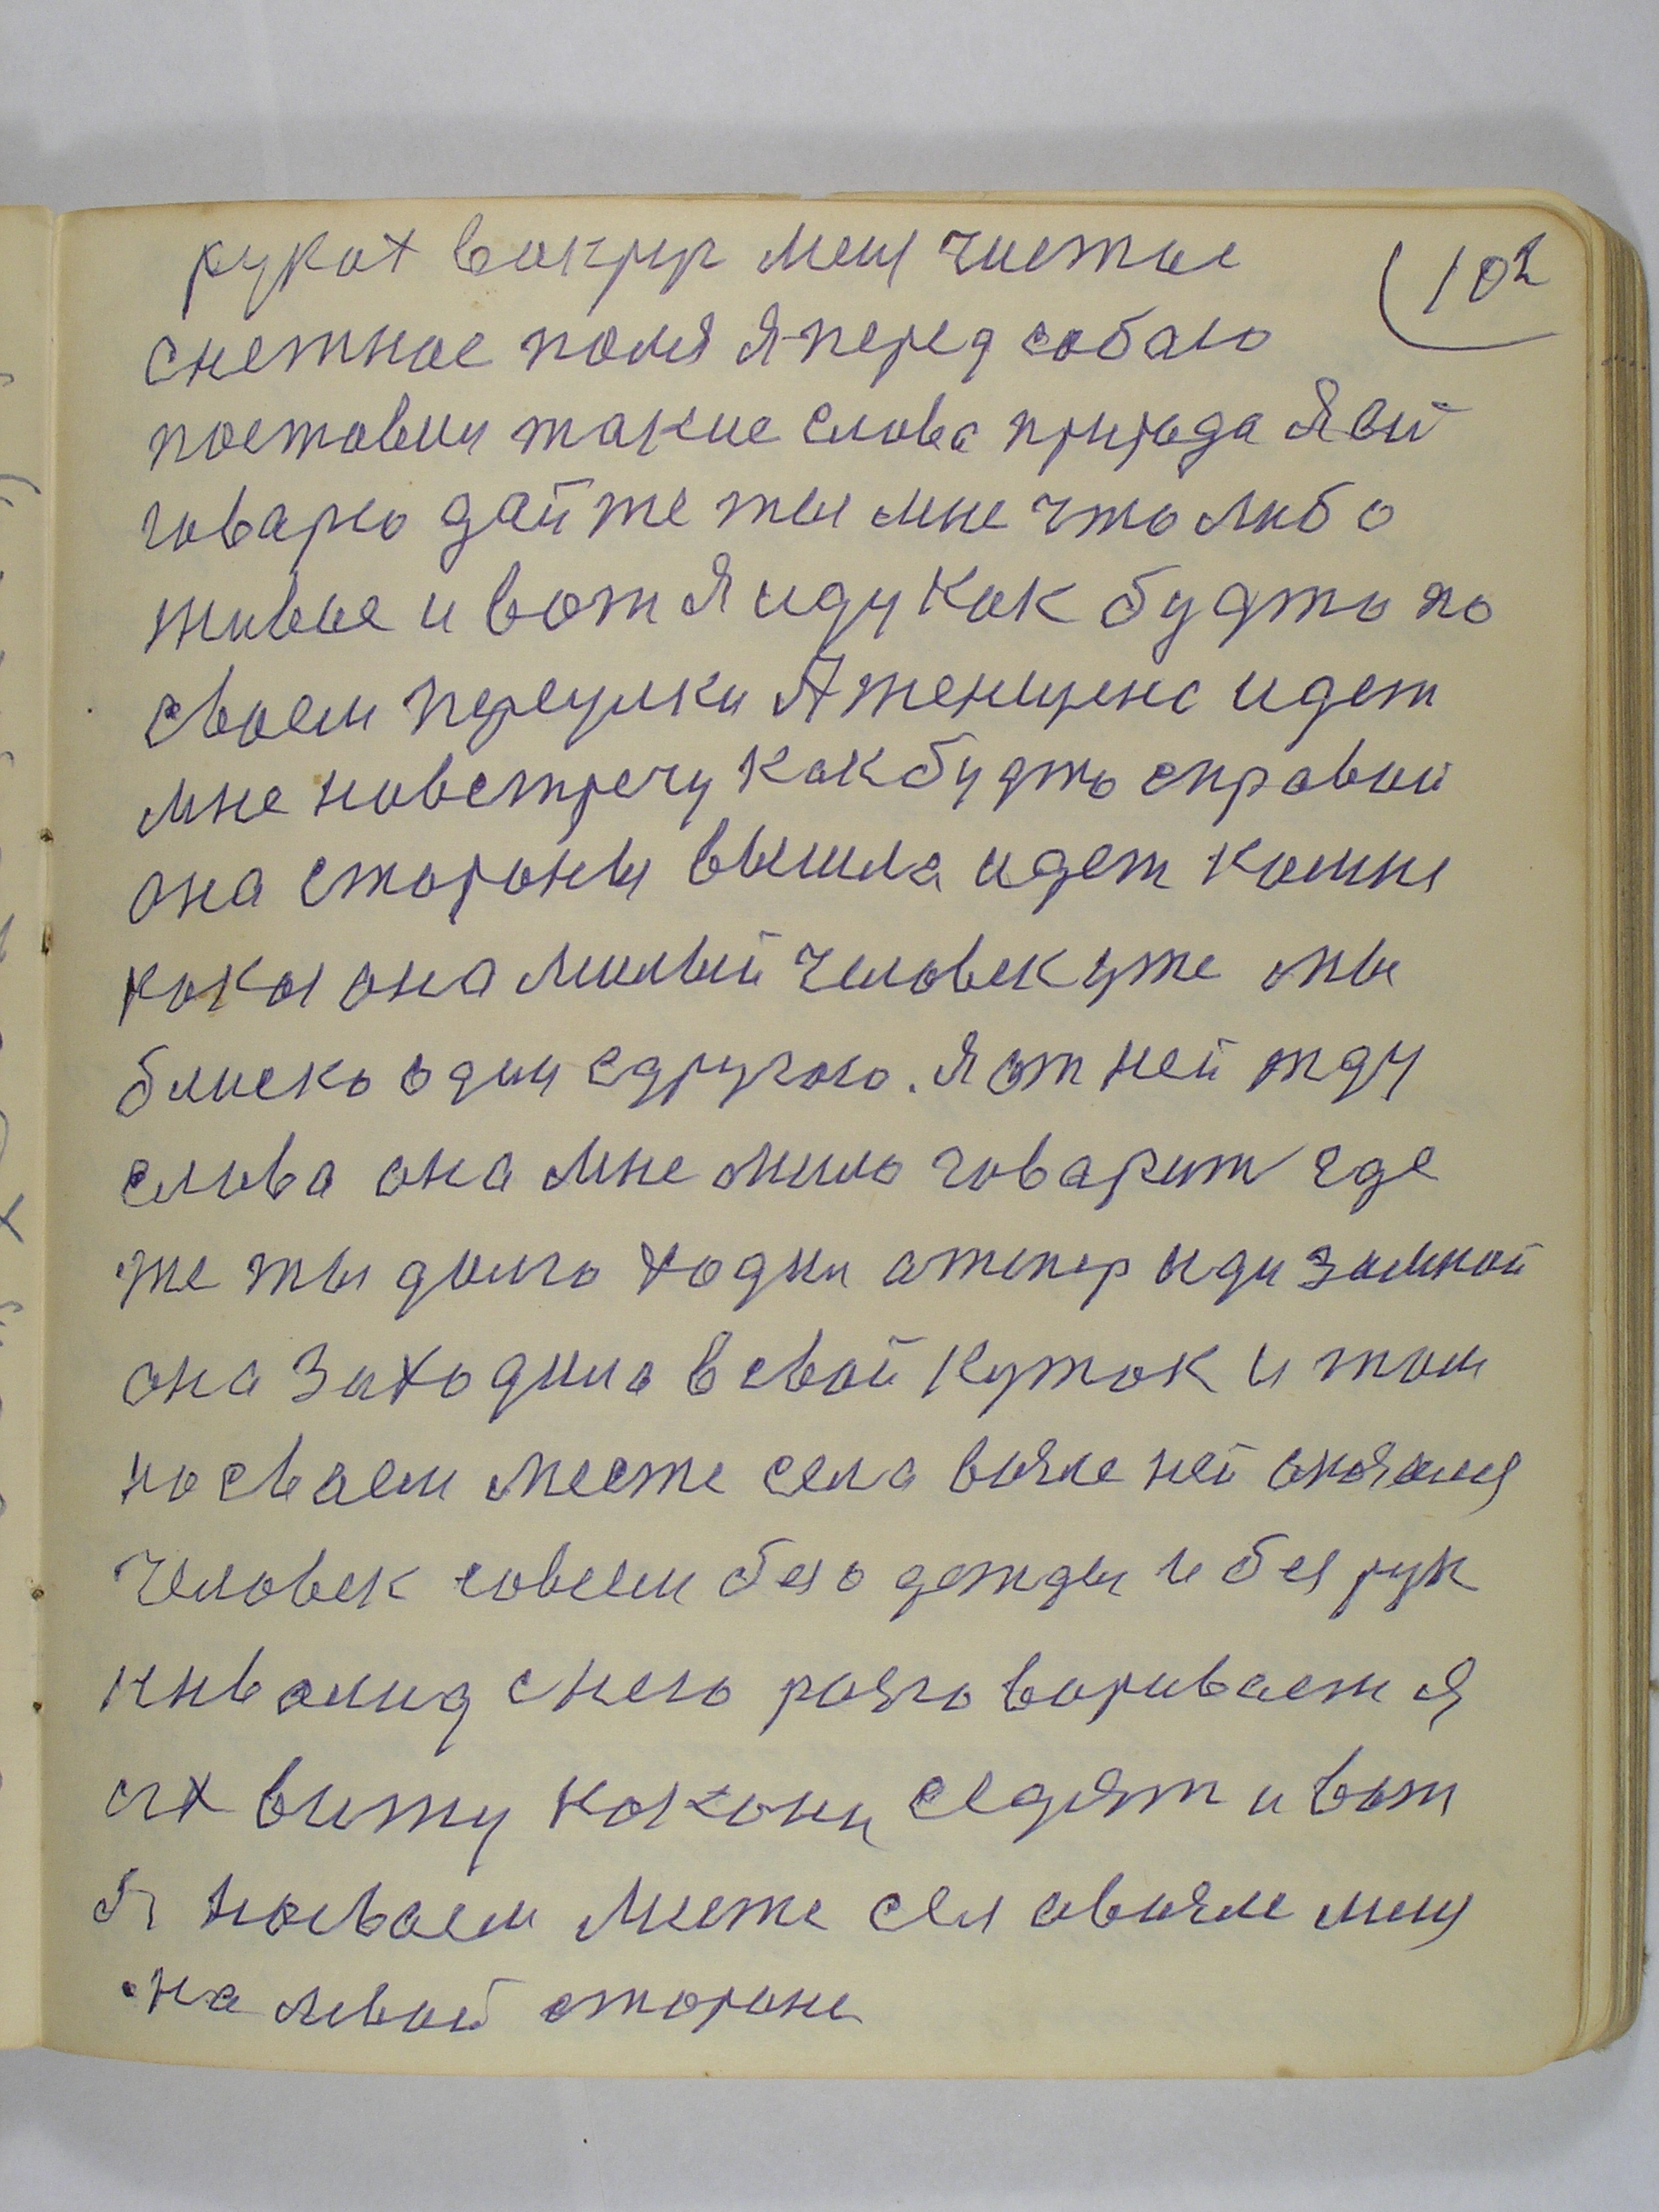 руках вокруг меня чистае
102
снежное поля Я перед собаю
поставил такие слова природа Я ей
говарю дай же ты мне что либо
живое и вот Я иду как будто по
своем переулки А женщина идет
мне навстречу как будто справой
она стораны вышла идет комня
какая она милый человек уже мы
блиско один сдругою. Я от ней жду
слова она мне мило говарит где
же ты долго ходил а тепер иди замной
она заходила в свой куток и там
на сваем месте села возле ней
человек совсем без одежды и без рук
инвалид снею разговаривает Я
их вижу как они седят и вот
Я на сваем месте сел авозле меня
на левой стороне